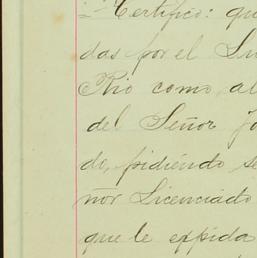 Certifico: qu
das por el Su
Rio como, al
del Señor Jo
do, pidiendo se
ñor Licenciado
que le expida